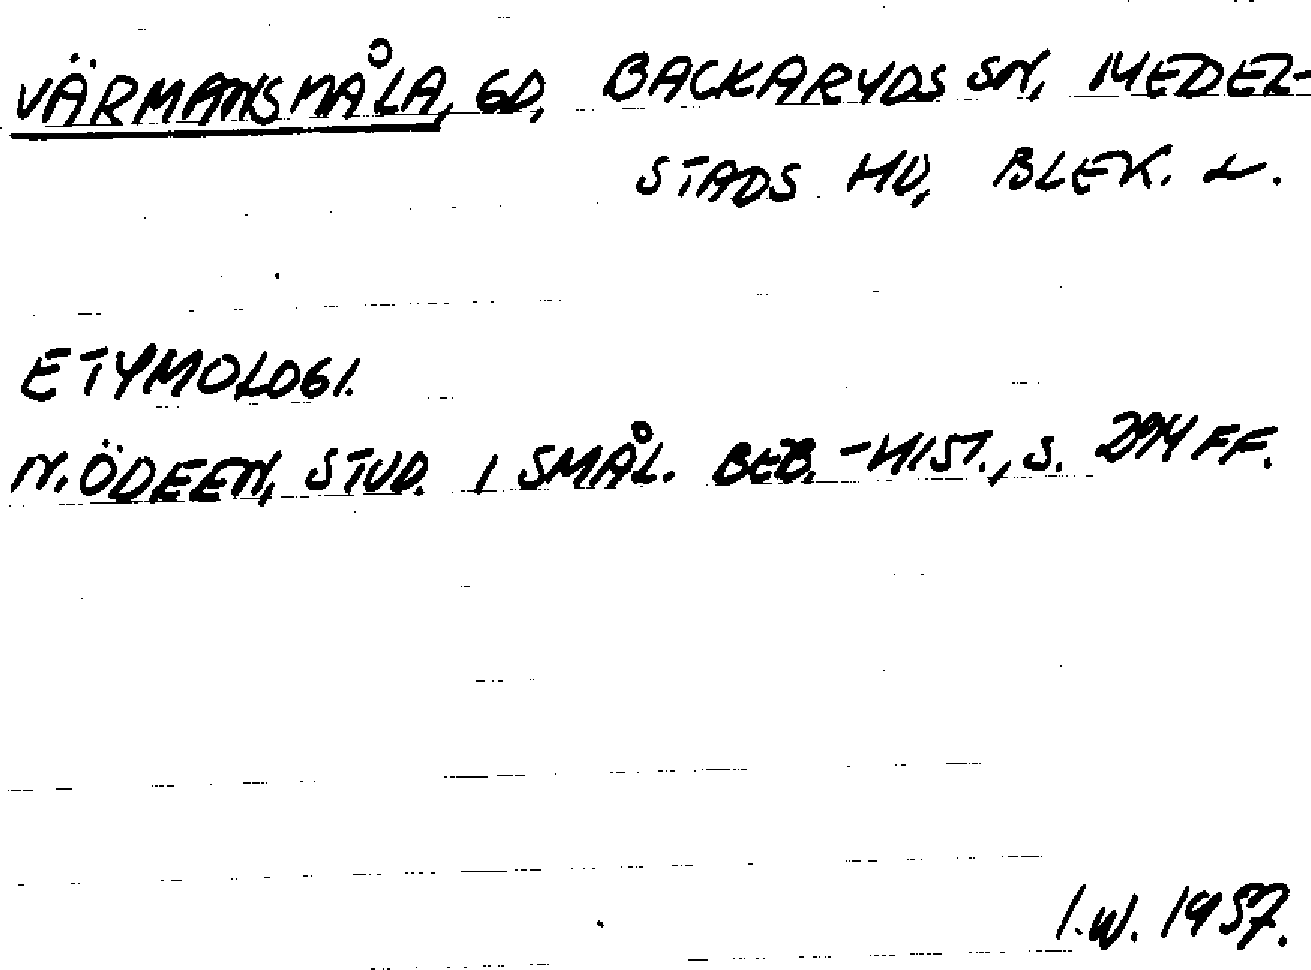 VÄRMANSMÅLA, GD, BACKARYDS SN, MEDEL-
STADS HD, BLEK. L.
ETYMOLOGI.
N. ÖDEEN, STUD. I SMÅL. BEB.-HIST., S. 294 FF.
I.W. 1957.